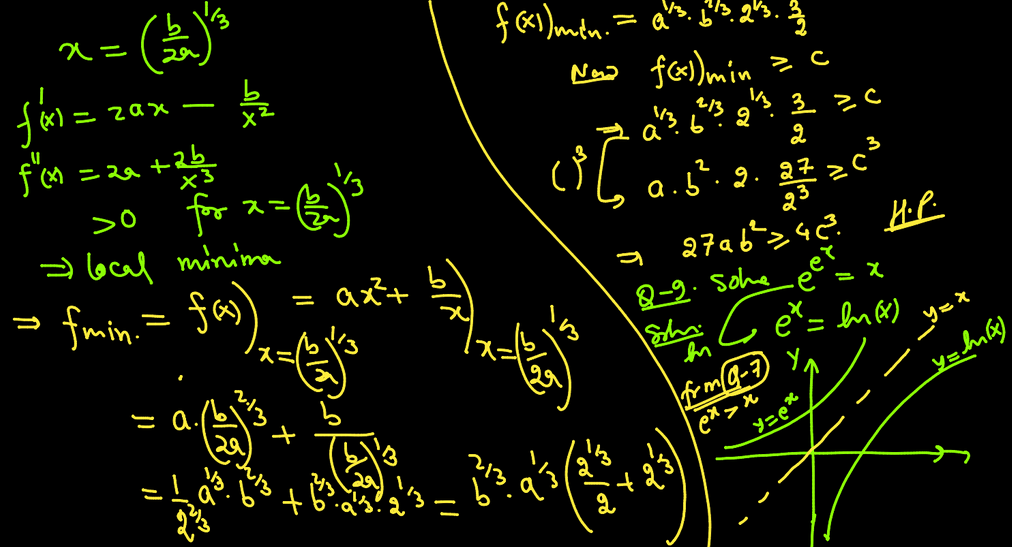 x = (b/2a)^1/3
f'(x) = 2ax − b/x²
f''(x) = 2a + 2b/x³
>0 for x = (b/2a)^1/3
⇒ local minima
⇒ fmin. = f(x))x=(b/2a)^1/3 = ax² + b/x)x=(b/2a)^1/3
= a.(b/2a)^2/3 + b/(b/2a)^1/3
= 1/2^2/3 a^1/3 . b^2/3 + b^2/3 . a^1/3 . 2^1/3 = b^2/3 . a^1/3 (2^1/3/2 + 2^1/3)
f(x))min. = a^1/3 . b^2/3 . 2^1/3 . 3/2
Now f(x))min ≥ c
⇒ a^1/3 . b^2/3 . 2^1/3 . 3/2 ≥ c
( )³ a . b² . 2 . 27/2³ ≥ c³
⇒ 27ab² ≥ 4c³. H.P.
Q-9. Solve e^e^x = x
Soln: ln e^x = ln(x)
frm Q-7
e^x > x
y
y=e^x
y=x
y=ln(x)